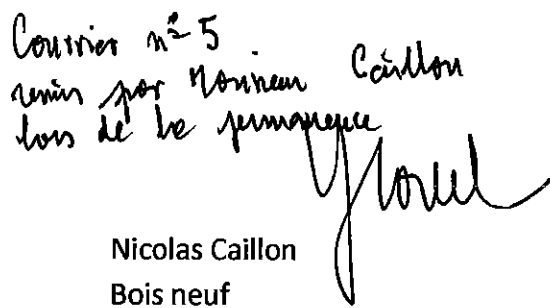 Courrier n° 5
remis par Monsieur Caillon
lors de la permanence
Nicolas Caillon
Bois neuf